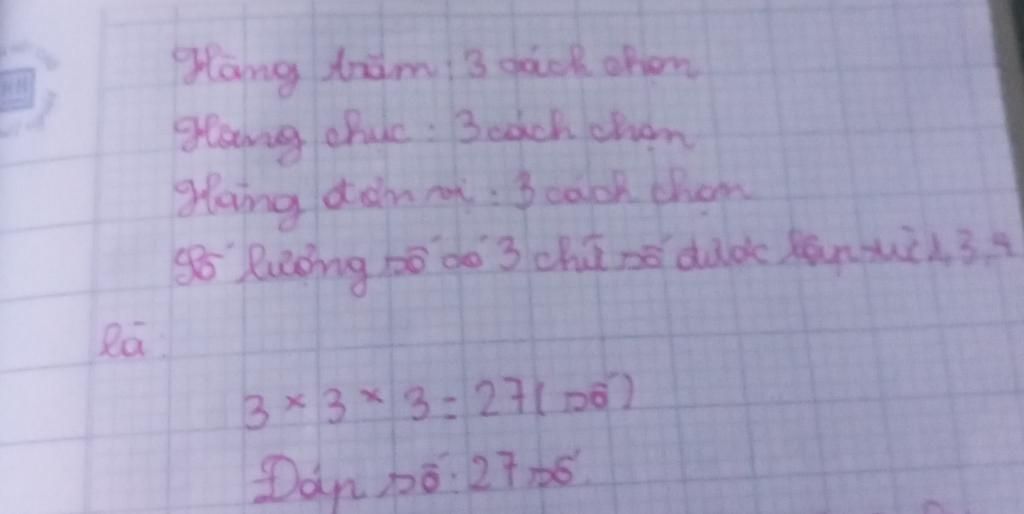 Hàng trăm: 3 cách chọn
Hàng chục: 3 cách chọn
Hàng đơn vị: 3 cách chọn
Số lượng số có 3 chữ số được lập từ 1, 3, 4
là:
3 × 3 × 3 = 27 (số)
Đáp số: 27 số